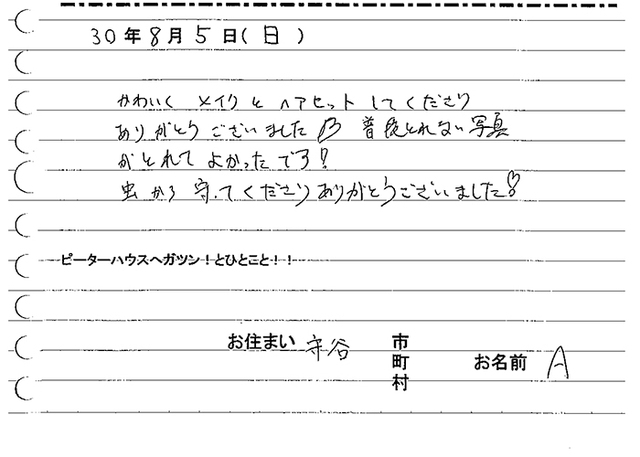 30年8月5日(日)
かわいく メイクと ヘアセット してくださり
ありがとうございました♡ 普段とれない写真
がとれて よかったです!
虫から守ってくださりありがとうございました♡
ピーターハウスへガツン!とひとこと!!
お住まい 守谷 市
町 お名前 A
村